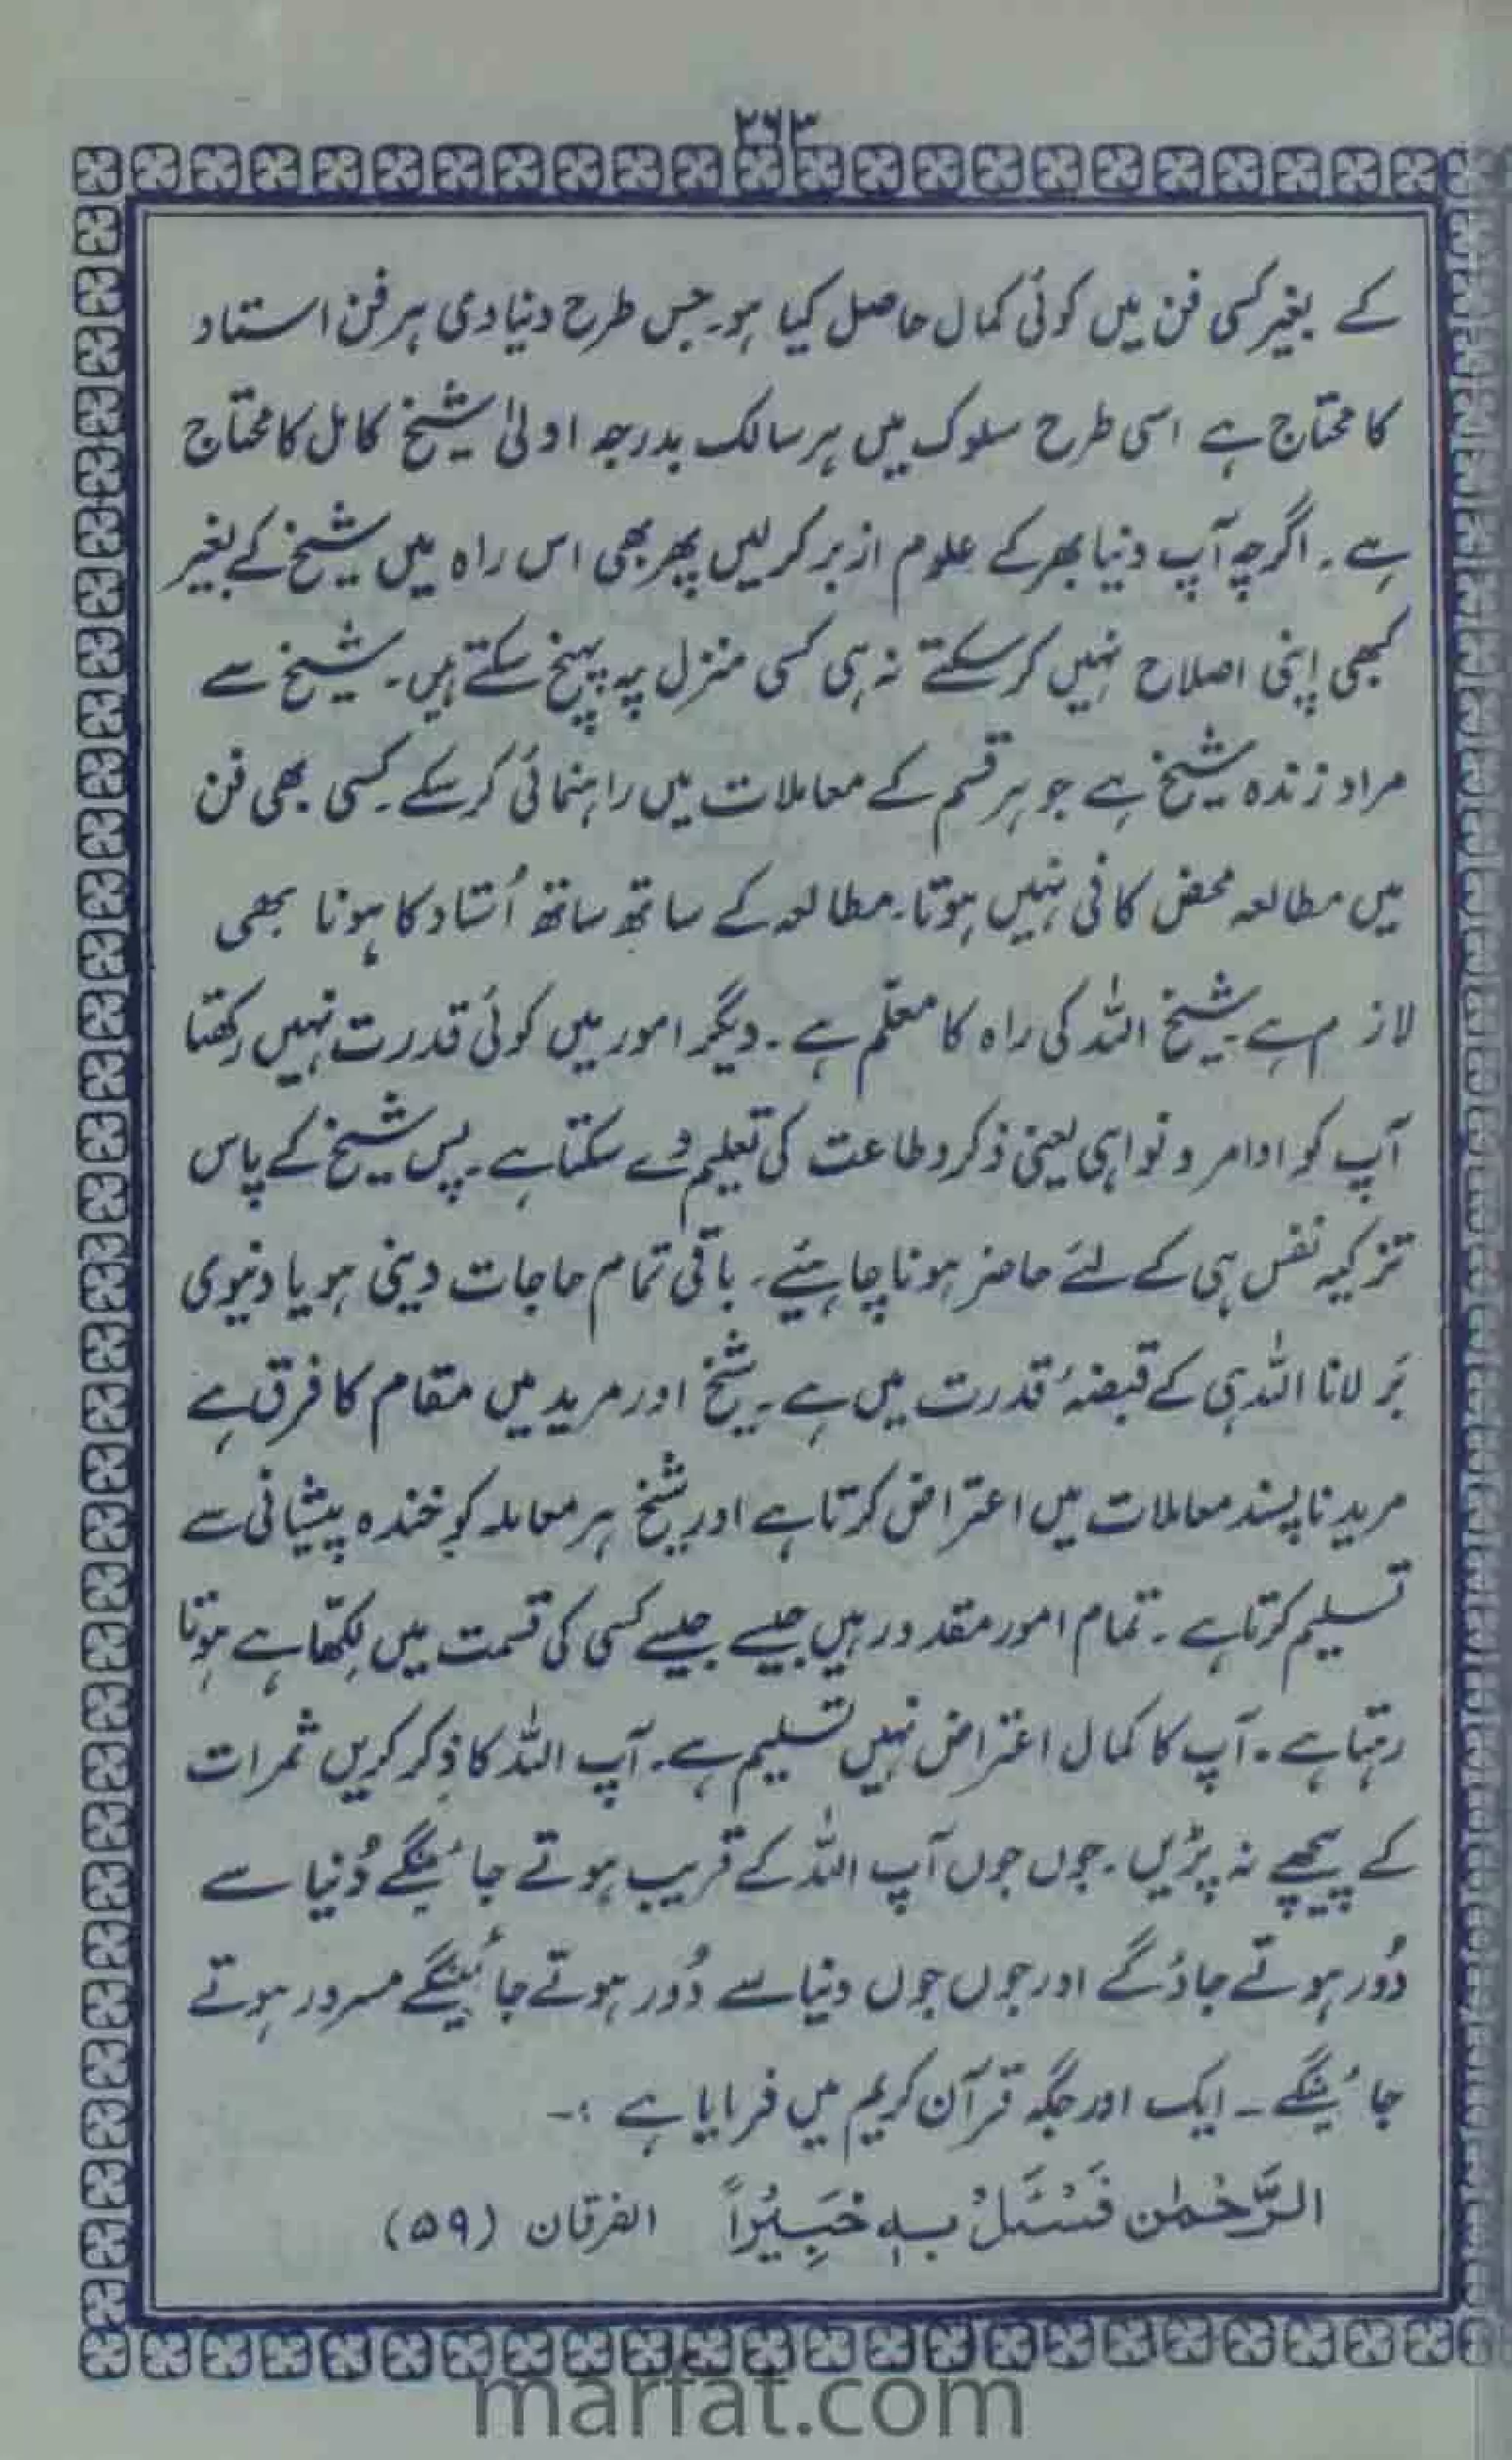 ۲۶۳
کے بغیر کسی فن میں کوئی کمال حاصل کیا ہو۔ جس طرح دنیاوی ہر فن استاد
کا محتاج ہے اسی طرح سلوک میں ہر سالک بدرجہ اولیٰ شیخ کامل کا محتاج
ہے۔ اگرچہ آپ دنیا بھر کے علوم ازبر کر لیں پھر بھی اس راہ میں شیخ کے بغیر
کبھی اپنی اصلاح نہیں کر سکتے نہ ہی کسی منزل پہ پہنچ سکتے ہیں۔ شیخ سے
مراد زندہ شیخ ہے جو ہر قسم کے معاملات میں راہنمائی کر سکے۔ کسی بھی فن
میں مطالعہ محض کافی نہیں ہوتا۔ مطالعہ کے ساتھ ساتھ اُستاد کا ہونا بھی
لازم ہے۔ شیخ اللہ کی راہ کا معلّم ہے۔ دیگر امور میں کوئی قدرت نہیں رکھتا
آپ کو اوامر و نواہی یعنی ذکر و طاعت کی تعلیم دے سکتا ہے۔ پس شیخ کے پاس
تزکیہ نفس ہی کے لئے حاضر ہونا چاہئیے۔ باقی تمام حاجات دینی ہو یا دنیوی
بَر لانا اللہ ہی کے قبضۂ قدرت میں ہے۔ شیخ اور مرید میں مقام کا فرق ہے
مرید ناپسند معاملات میں اعتراض کرتا ہے اور شیخ ہر معاملہ کو خندہ پیشانی سے
تسلیم کرتا ہے۔ تمام امور مقدور ہیں جیسے جیسے کسی کی قسمت میں لکھّا ہے ہوتا
رہتا ہے۔ آپ کا کمال اعتراض نہیں تسلیم ہے۔ آپ اللہ کا ذِکر کریں ثمرات
کے پیچھے نہ پڑیں۔ جوں جوں آپ اللہ کے قریب ہوتے جائینگے دُنیا سے
دُور ہوتے جاؤگے اور جوں جوں دنیا سے دُور ہوتے جائینگے مسرور ہوتے
جائینگے۔ ایک اور جگہ قرآن کریم میں فرمایا ہے :۔
الرَّحْمٰن فَسْئَلْ بِہٖ خَبِیْراً الفرقان (۵۹)
marfat.com